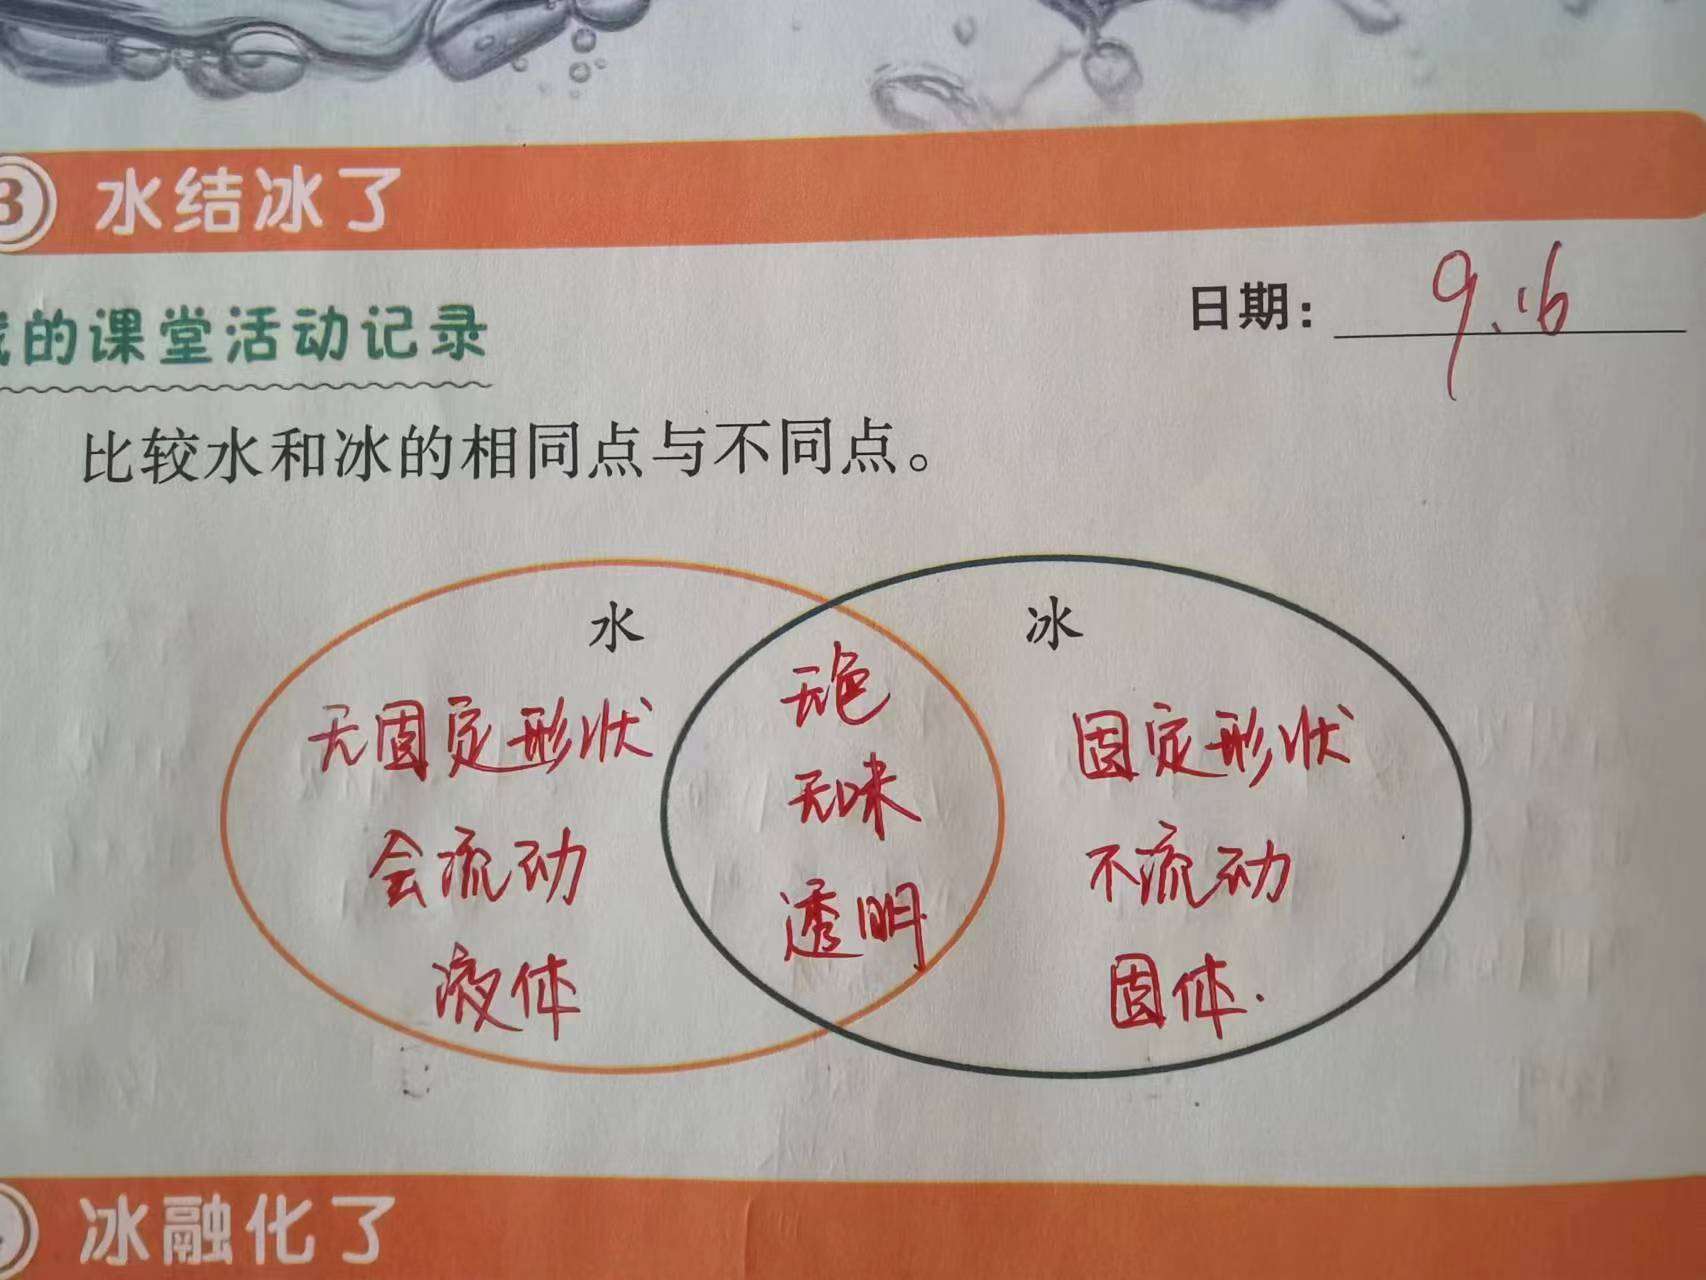 3 水结冰了
我的课堂活动记录
日期: 9.16
比较水和冰的相同点与不同点。
水
冰
无固定形状
会流动
液体
无色
无味
透明
固定形状
不流动
固体.
冰融化了